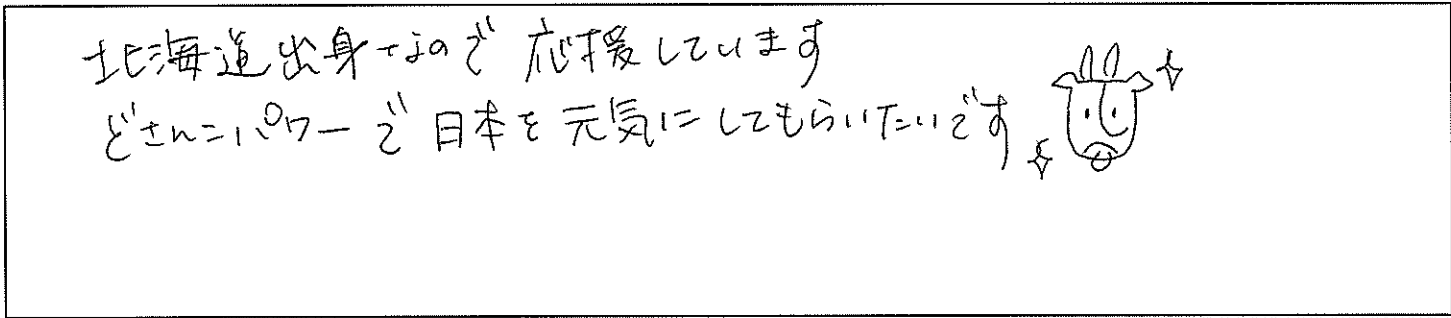 北海道出身なので応援しています
どさんこパワーで日本を元気にしてもらいたいです